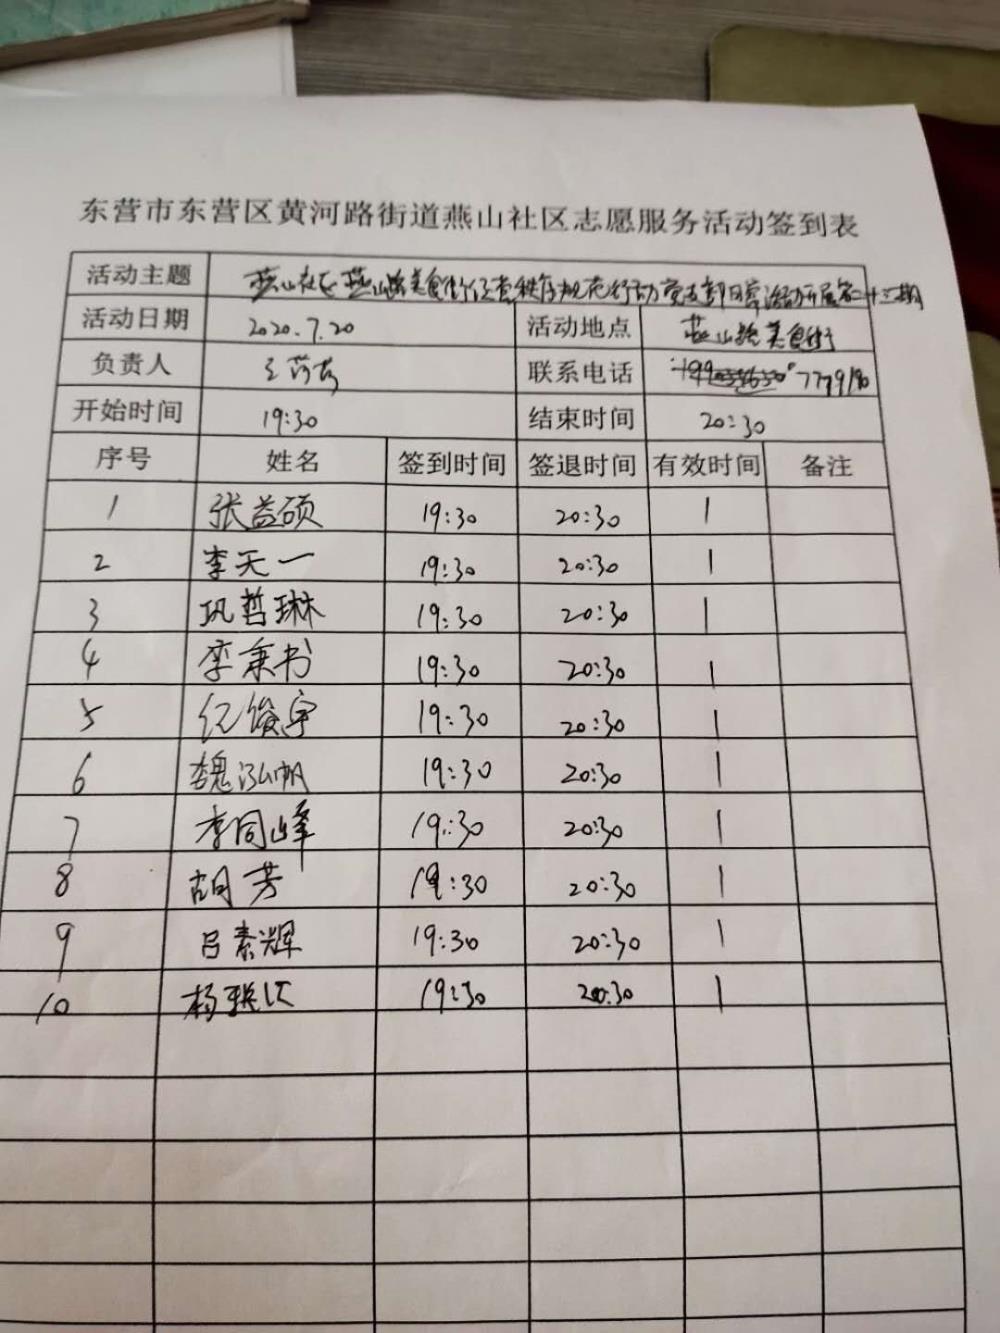 东营市东营区黄河路街道燕山社区志愿服务活动签到表
活动主题 燕山社区燕山路美食街经营秩序规范行动党支部日常活动开展第二十三期
活动日期 2020.7.20 活动地点 燕山路美食街
负责人 王 联系电话 7779190
开始时间 19:30 结束时间 20:30
序号 姓名 签到时间 签退时间 有效时间 备注
1 张益硕 19:30 20:30 1
2 李天一 19:30 20:30 1
3 巩哲琳 19:30 20:30 1
4 李秉书 19:30 20:30 1
5 纪俊宇 19:30 20:30 1
6 魏泓帆 19:30 20:30 1
7 李同峰 19:30 20:30 1
8 胡芳 19:30 20:30 1
9 吕素辉 19:30 20:30 1
10 杨 19:30 20:30 1